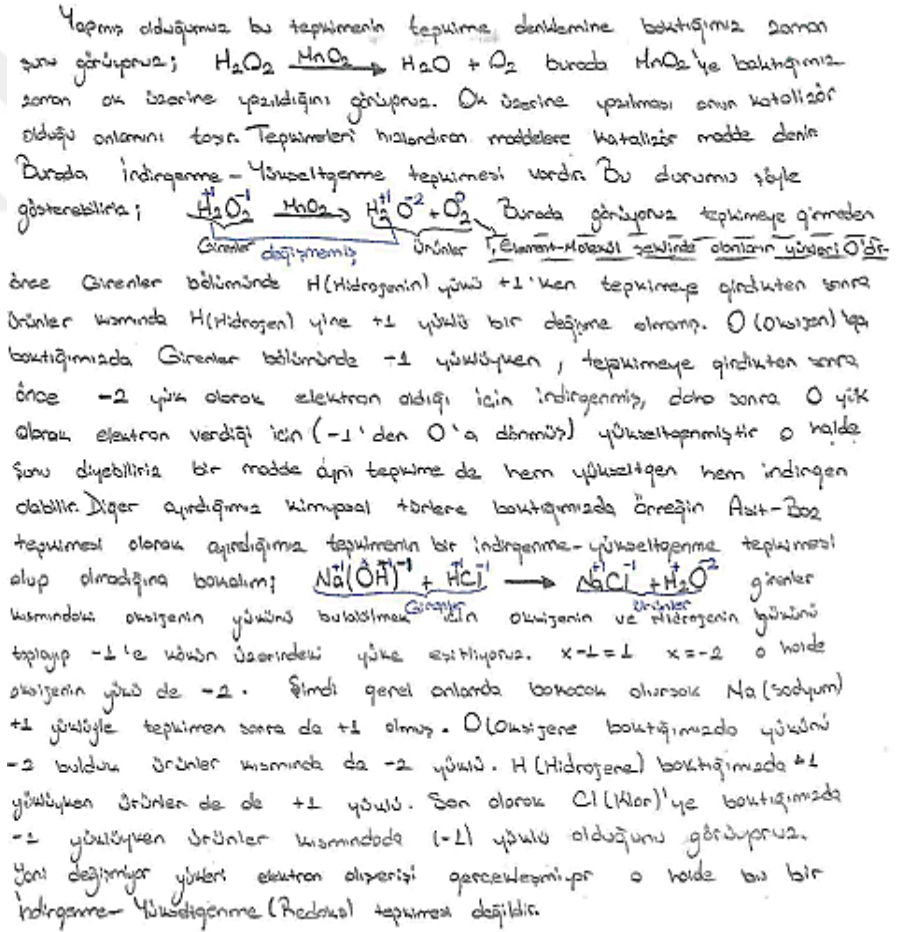 Yapmış olduğumuz bu tepkimenin tepkime denklemine baktığımız zaman
şunu görüyoruz; H₂O₂ MnO₂→ H₂O + O₂ burada MnO₂'ye baktığımız
zaman ok üzerine yazıldığını görüyoruz. Ok üzerine yazılması onun katalizör
olduğu anlamını taşır. Tepkimeleri hızlandıran maddelere katalizör madde denir
Burada İndirgenme - Yükseltgenme tepkimesi vardır. Bu durumu şöyle
gösterebiliriz; H₂⁺¹O₂⁻¹ MnO₂→ H₂⁺¹O⁻² + O₂⁰ Burada görüyoruz tepkimeye girmeden
Girenler değişmemiş Ürünler Element-Molekül şeklinde olanların yükleri 0'dır
önce Girenler bölümünde H(Hidrojenin) yükü +1'ken tepkimeye girdikten sonra
ürünler kısmında H(Hidrojen) yine +1 yüklü bir değişme olmamış. O (Oksijen)
baktığımızda Girenler bölümünde -1 yüklüyken, tepkimeye girdikten sonra
önce -2 yük olarak elektron aldığı için indirgenmiş, daha sonra 0 yük
olarak elektron verdiği için (-1'den 0'a dönmüş) yükseltgenmiştir o halde
Şunu diyebiliriz bir madde aynı tepkime de hem yükseltgen hem indirgen
olabilir. Diğer ayırdığımız kimyasal türlere baktığımızda örneğin Asit-Baz
tepkimesi olarak ayırdığımız tepkimenin bir indirgenme-yükseltgenme tepkimesi
olup olmadığına bakalım; Na⁺¹(OH)⁻¹ + H⁺¹Cl⁻¹ → Na⁺¹Cl⁻¹ + H₂⁺¹O⁻² girenler
Girenler Ürünler
kısmındaki oksijenin yükünü bulabilmek için oksijenin ve Hidrojenin yükünü
toplayıp -1'e kökün üzerindeki yüke eşitliyoruz. x-1=1 x=-2 o halde
oksijenin yükü de -2. Şimdi genel anlamda bakacak olursak Na (sodyum)
+1 yüklüyle tepkimen sonra da +1 olmuş. O(Oksijene baktığımızda yükünü
-2 bulduk ürünler kısmında da -2 yüklü. H (Hidrojene) baktığımızda +1
yüklüyken ürünler de de +1 yüklü. Son olarak Cl (Klor)'ye baktığımızda
-1 yüklüyken ürünler kısmındada (-1) yüklü olduğunu görüyoruz.
Yani değişmiyor yükleri elektron alışverişi gerçekleşmiyor o halde bu bir
İndirgenme- Yükseltgenme (Redoks) tepkimesi değildir.